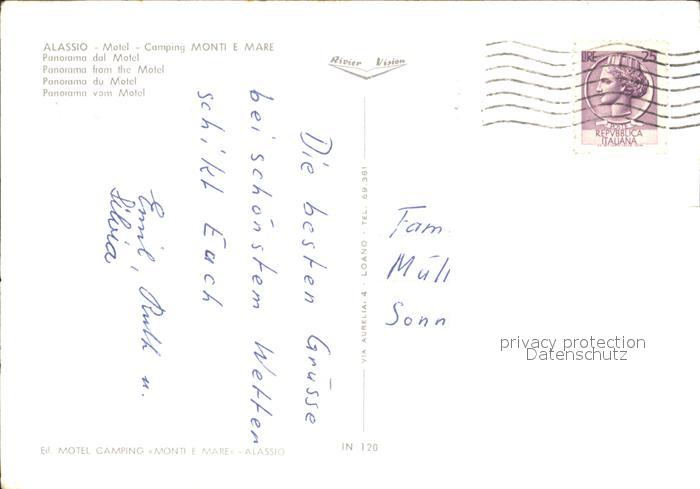 ALASSIO - Motel - Camping MONTI E MARE
Panorama dal Motel
Panorama from the Motel
Panorama du Motel
Panorama vom Motel
Rivier Vision
LIRE 25
POSTE
REPVBBLICA
ITALIANA
Die besten Grüsse
bei schönstem Wetter
schikt Euch
Emil, Ruth u.
Silvia
VIA AURELIA, 4 - LOANO - TEL. 69.381
Fam.
Müll
Sonn
privacy protection
Datenschutz
Ed. MOTEL CAMPING «MONTI E MARE» - ALASSIO
IN 120